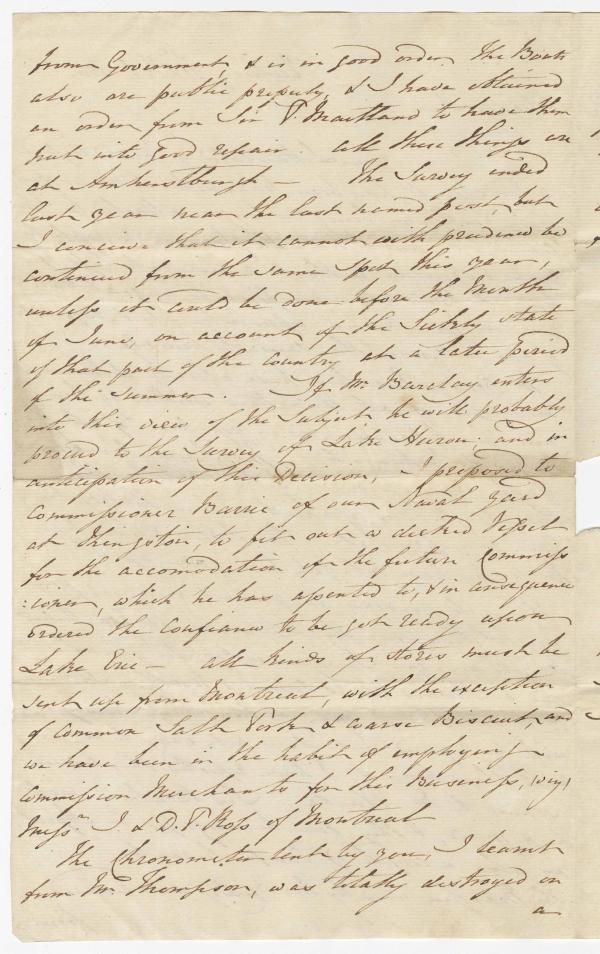 from Government, & is in good order. The Boats
also are public property, & I have obtained
an order from Sir P. Maitland to have them
put into good repair. All these things are
at Amherstburgh — The Survey ended
last year near the last named post, but
I conceive that it cannot with prudence be
continued from the same spot this year,
unless it could be done before the Month
of June, on account of the Sickly state
of that part of the Country at a later period
of the summer. If Mr. Barclay enters
into this view of the Subject he will probably
proceed to the Survey of Lake Huron; and in
anticipation of this Decision, I proposed to
Commissioner Barrie of our Naval yard
at Kingston, to fit out a decked Vessel
for the accomodation of the future Commiss
:ioner, which he has assented to, & in consequence
ordered the Confiance to be got ready upon
Lake Erie — all kinds of stores must be
sent up from Montreal, with the exception
of common Salt Pork & coarse Biscuit, and
we have been in the habit of employing
Commission Merchants for this Business, (viz,)
Messrs. J. & D. P. Ross of Montreal
The Chronometer lent by you, I learnt
from Mr. Thompson, was totally destroyed on
a